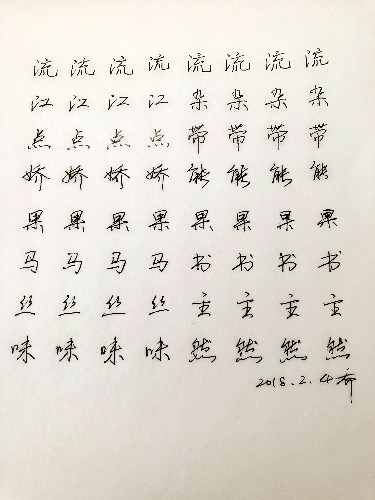 流流流流流流流流
江江江江杂杂杂杂
点点点点带带带带
娇娇娇娇能能能能
果果果果果果果果
马马马马书书书书
丝丝丝丝主主主主
味味味味然然然然
2018.2.4乔